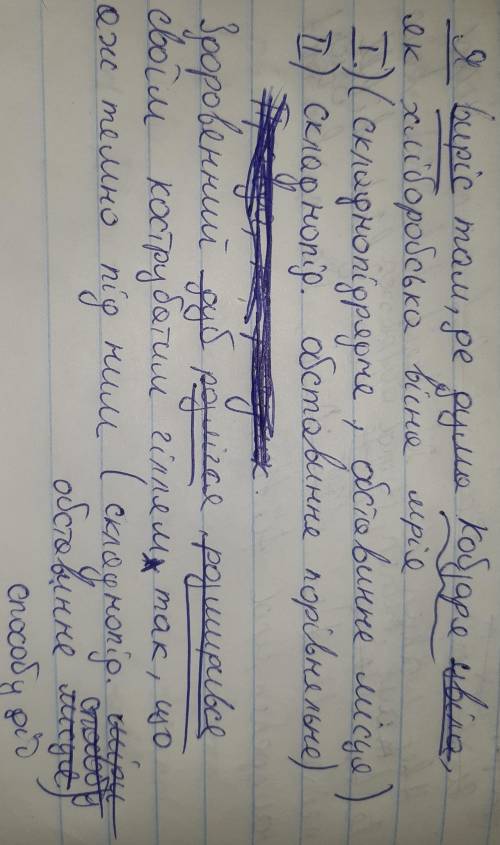 Я виріс там, де дума Кобзаря цвіла,
як хліборобська вічна мрія
I.) (складнопідрядне, обставинне місця)
II) складнопід. обставинне порівняльне)
Здоровенний дуб розлігся, розширився
своїм кострубатим гіллям так, що
аж темно під ним (складнопід. міри
обставинне способу
місця)
способу дії)